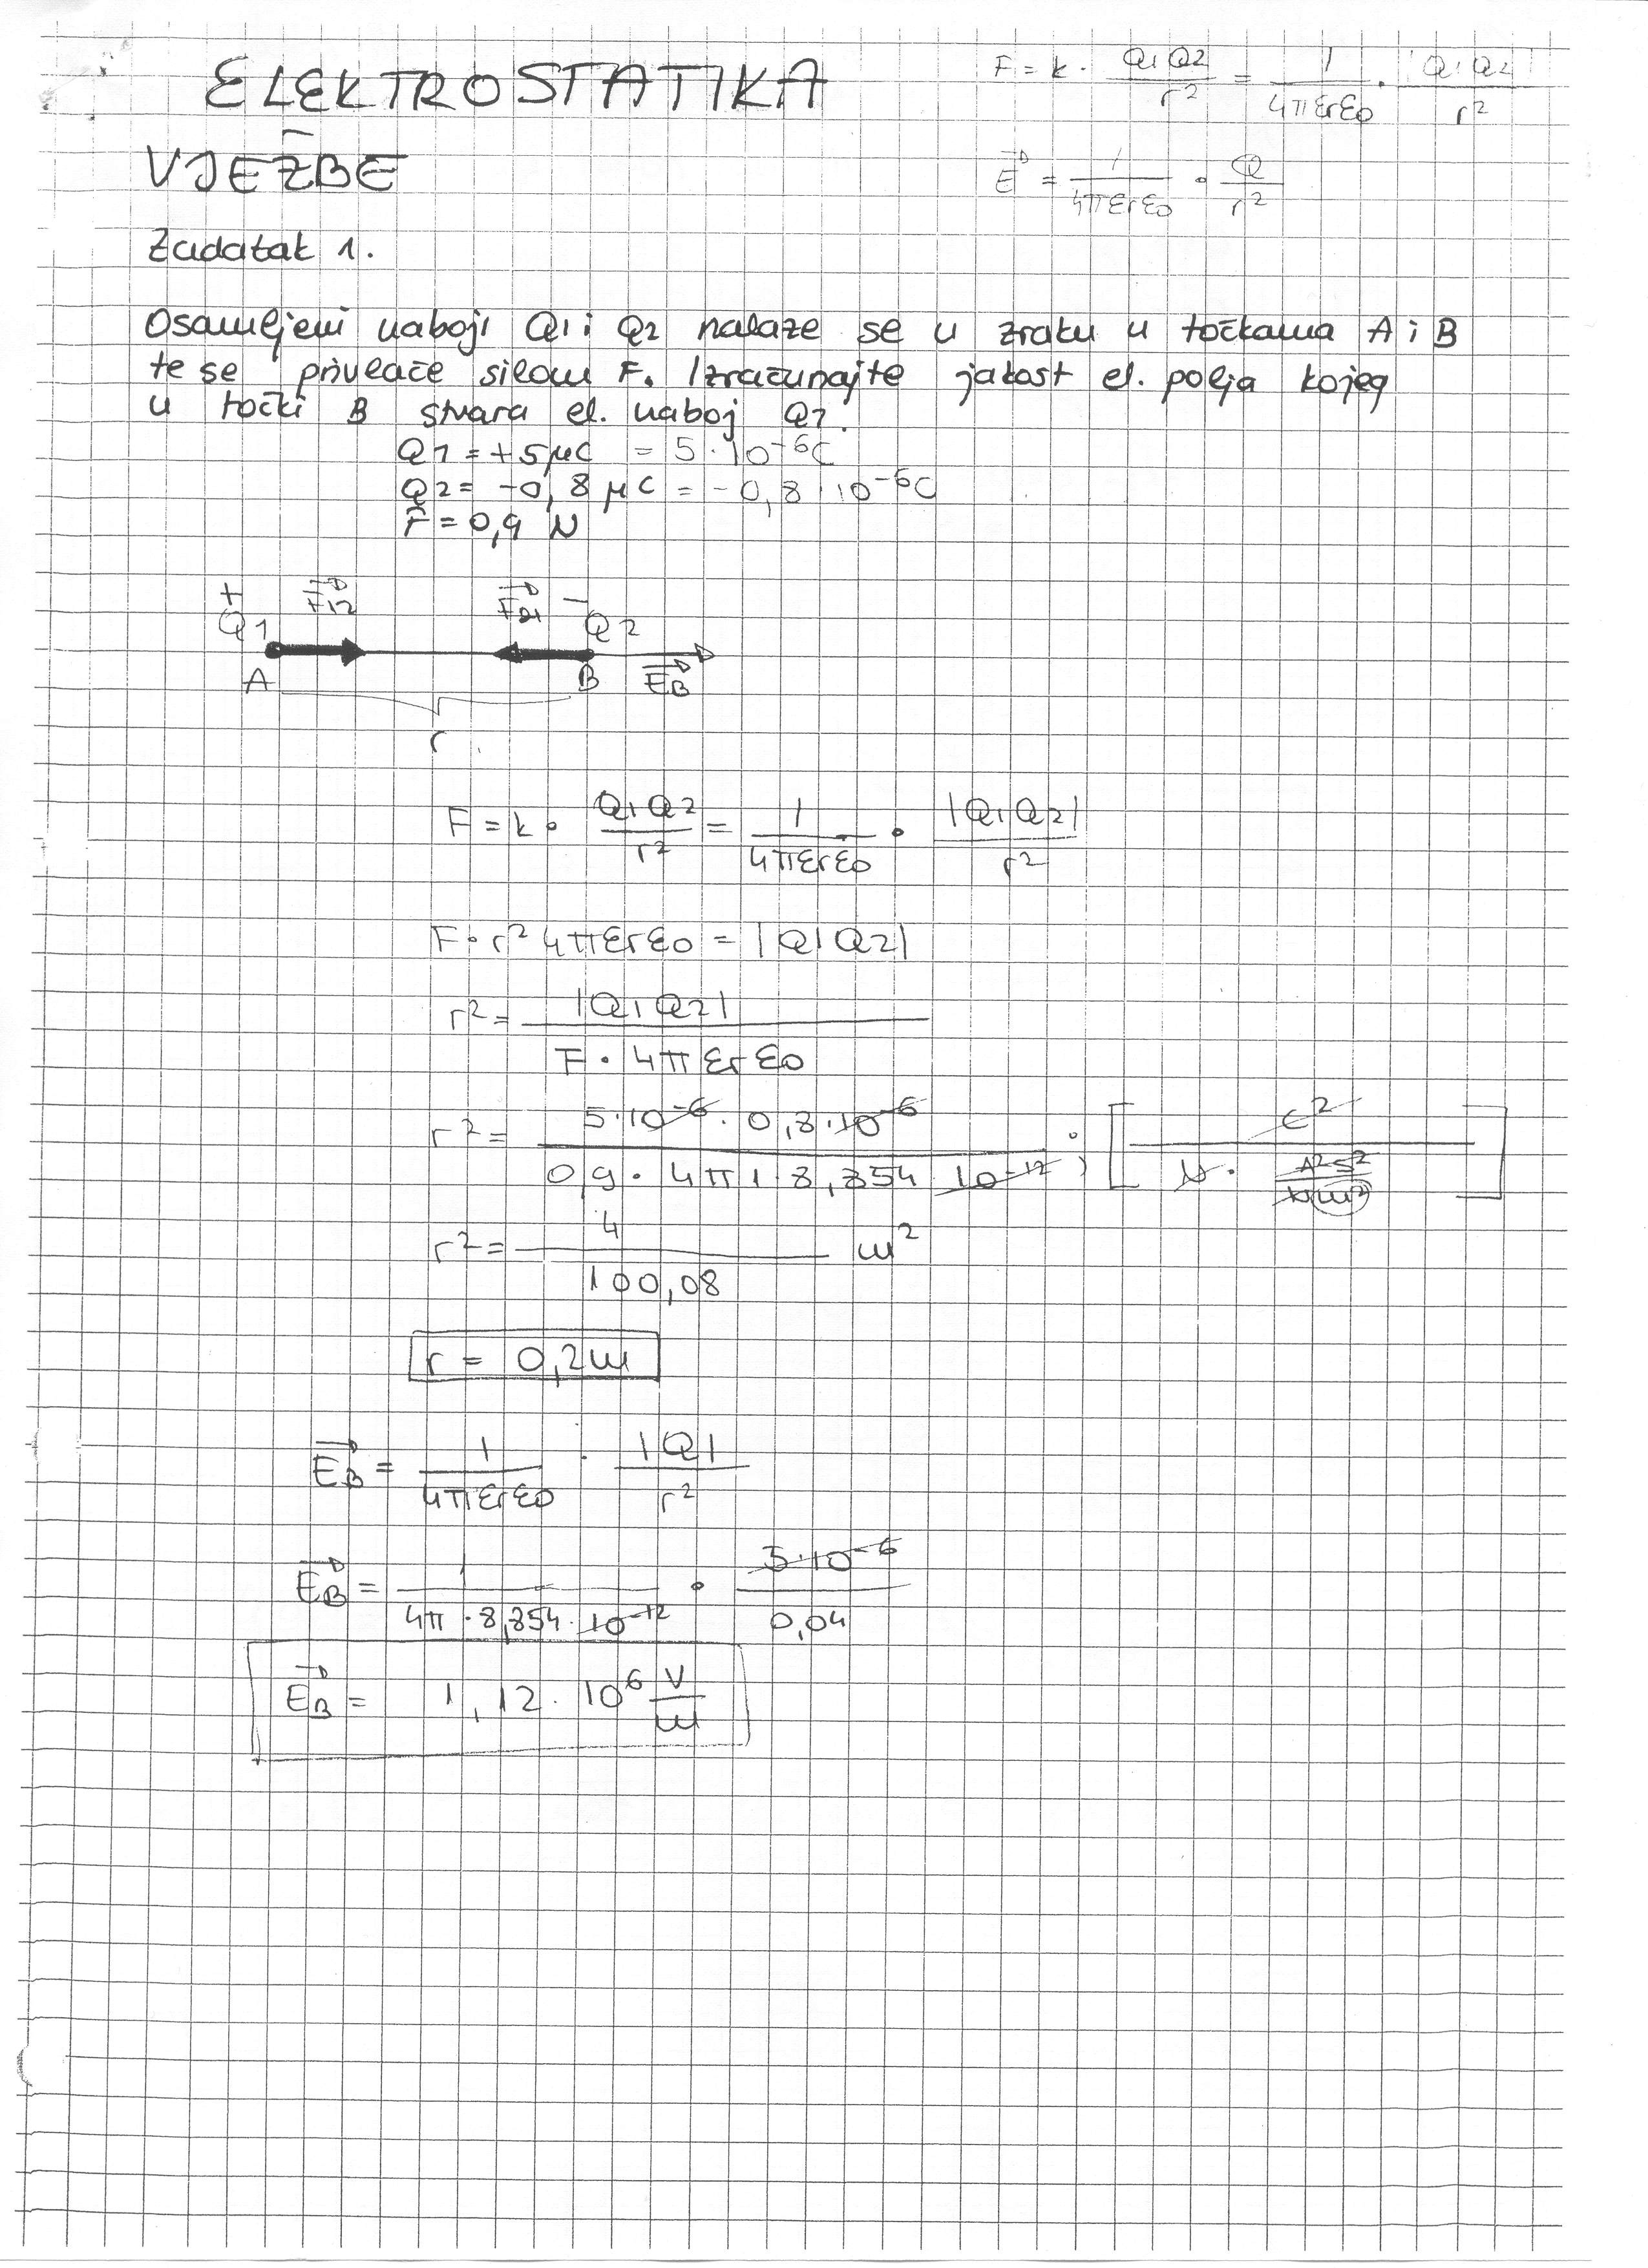 ELEKTROSTATIKA
F = k · Q1Q2/r² = 1/4πεrε0 · Q1Q2/r²
VJEŽBE
E⃗ = 1/4πεrε0 · Q/r²
Zadatak 1.
Osamljeni naboji Q1 i Q2 nalaze se u zraku u točkama A i B
te se privlače silom F. Izračunajte jakost el. polja kojeg
u točki B stvara el. naboj Q1.
Q1 = +5μC = 5·10⁻⁶C
Q2 = -0,8 μC = -0,8·10⁻⁶C
F = 0,9 N
+ F⃗12 F⃗21 −
Q1 Q2
A B E⃗B
r
F = k · Q1Q2/r² = 1/4πεrε0 · |Q1Q2|/r²
F·r² 4πεrε0 = |Q1Q2|
r² = |Q1Q2| / F·4πεrε0
r² = 5·10⁻⁶·0,8·10⁻⁶ / 0,9·4π1·8,854·10⁻¹² ; [C² / N·A²s²/Nm²]
r² = 4/100,08 m²
r = 0,2m
E⃗B = 1/4πεrε0 · |Q|/r²
E⃗B = 1/4π·8,854·10⁻¹² · 5·10⁻⁶/0,04
E⃗B = 1,12·10⁶ V/m